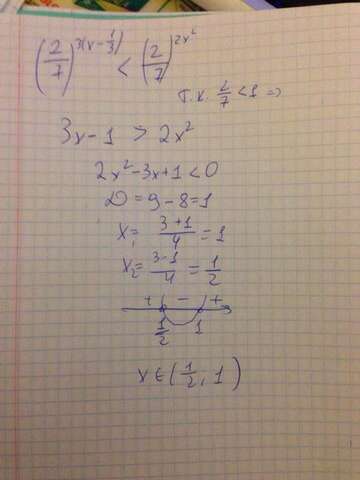 (2/7)^{3(x-1/3)} < (2/7)^{2x²}
т.к. 2/7 < 1 =>
3x-1 > 2x²
2x²-3x+1<0
D = 9-8=1
x₁= (3+1)/4 = 1
x₂= (3-1)/4 = 1/2
+ - +
1/2 1
x ∈ (1/2; 1)